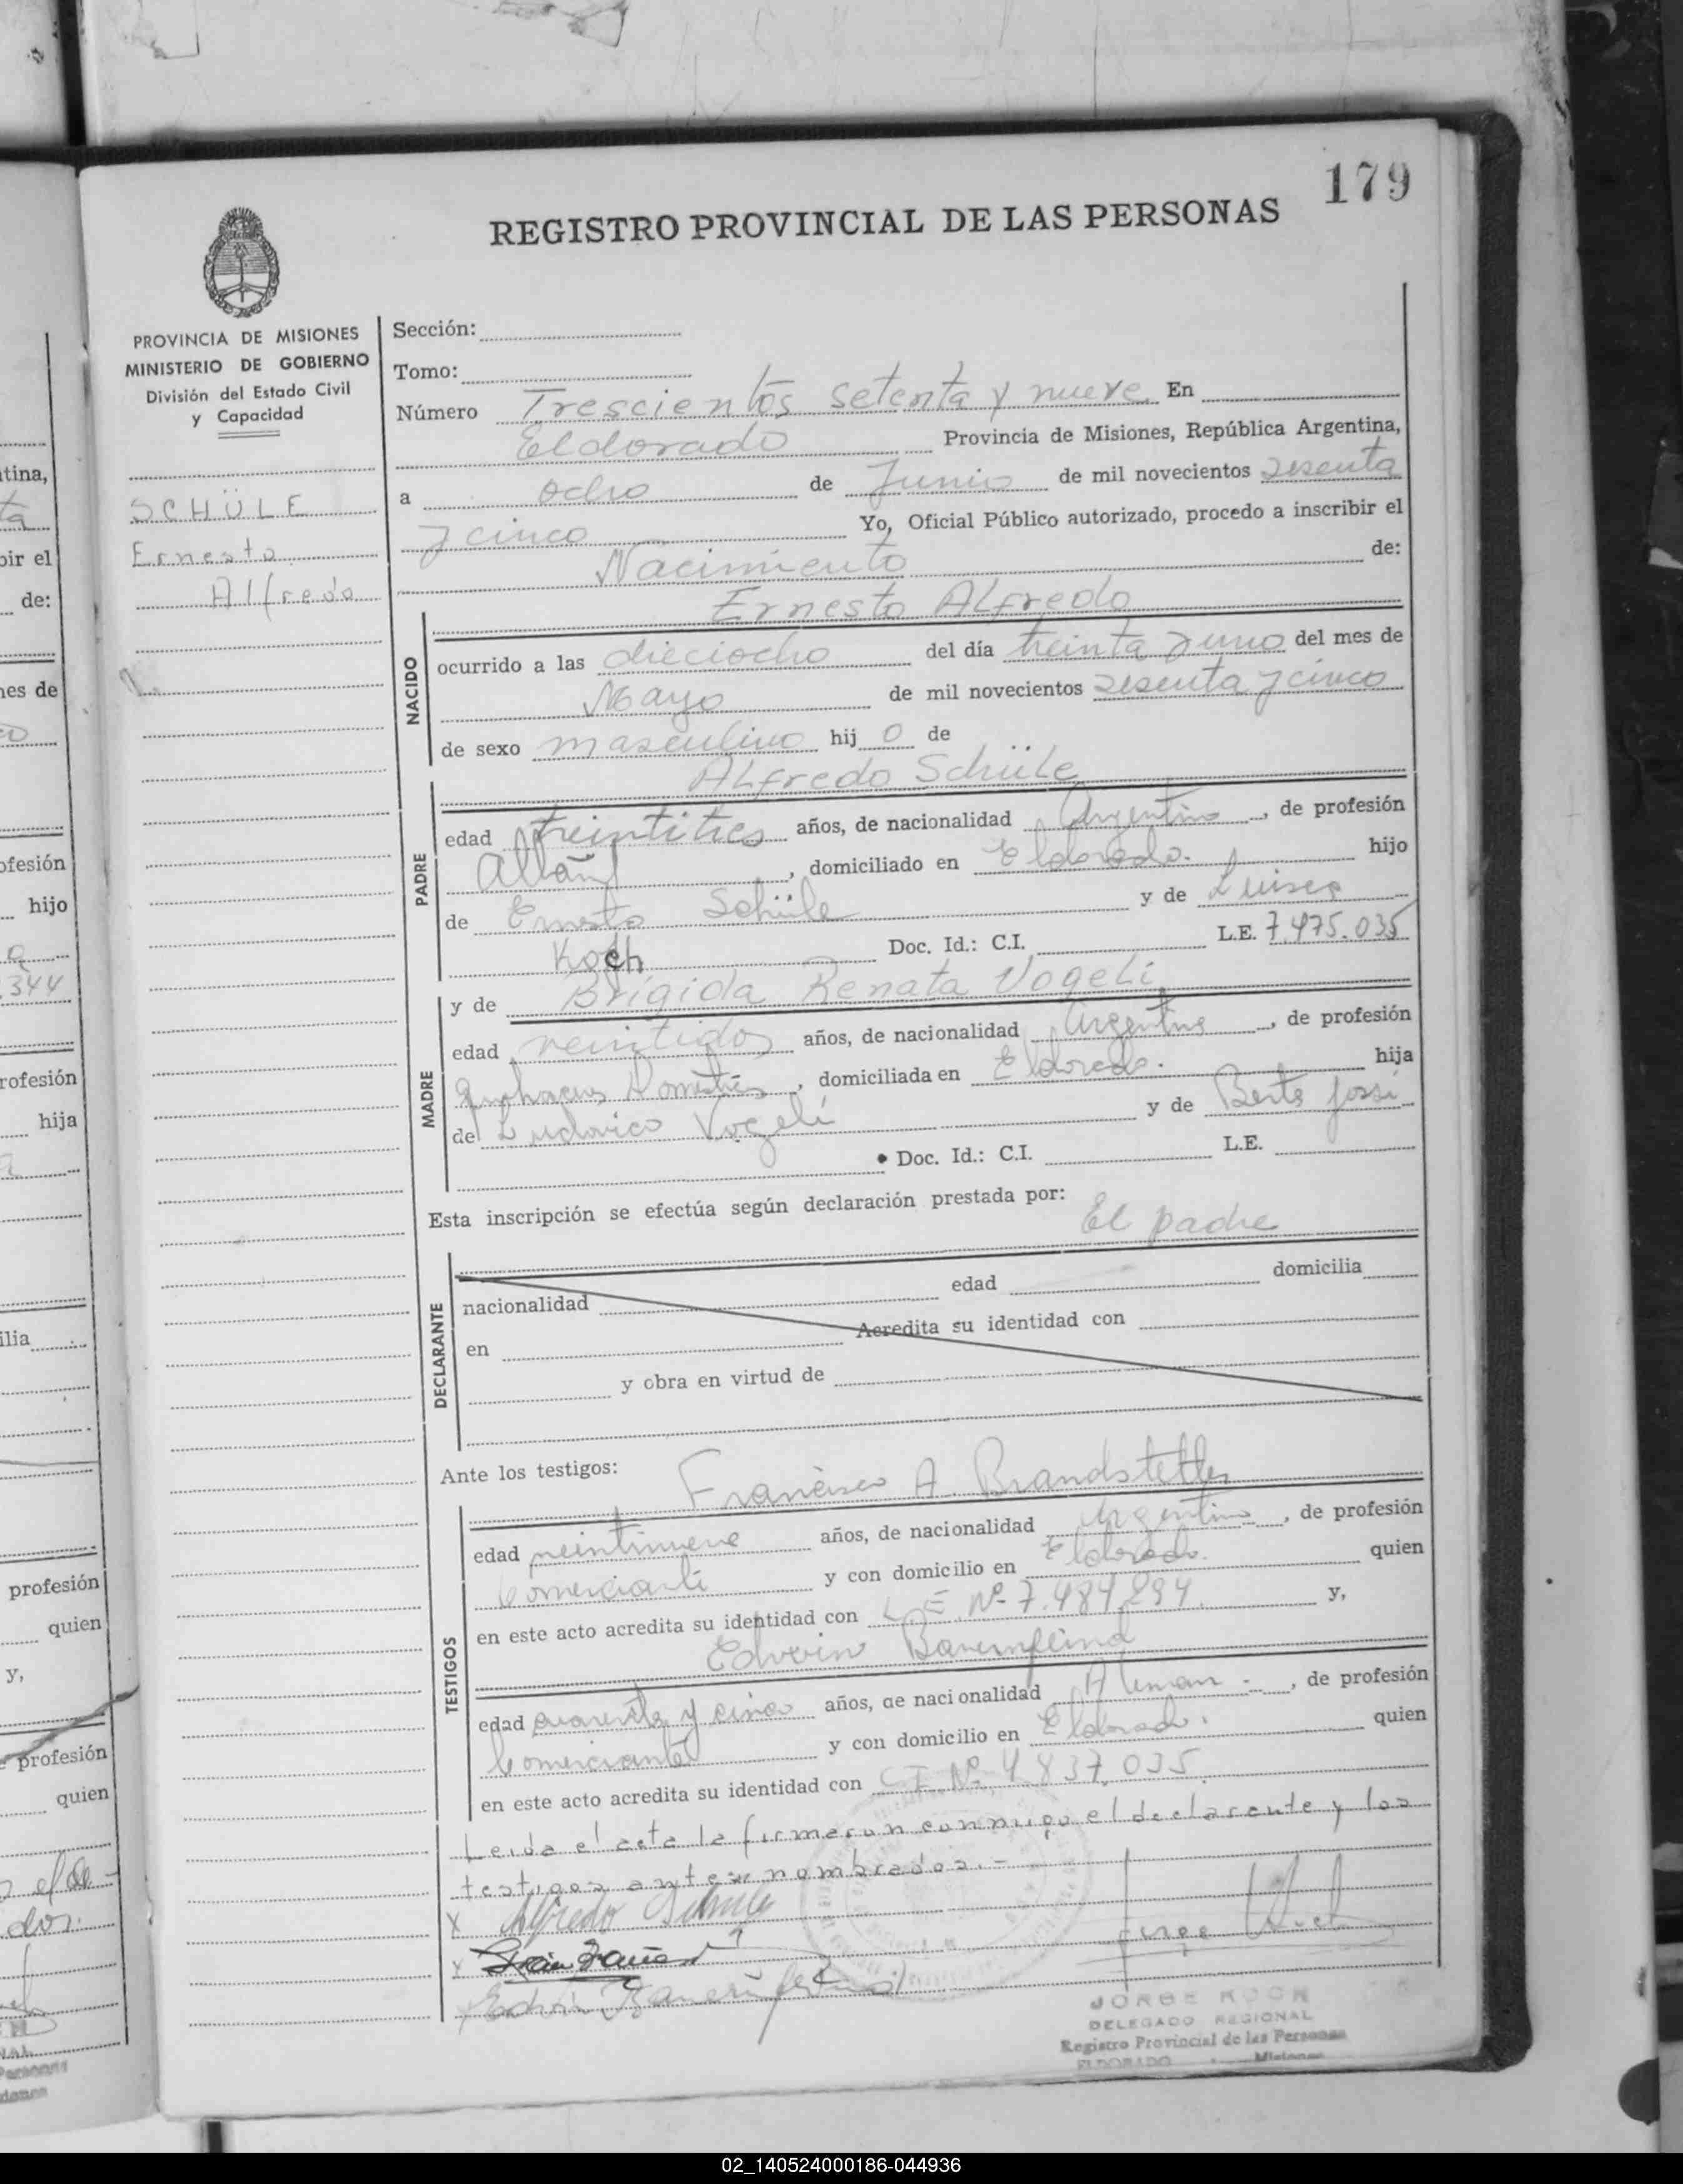 179
REGISTRO PROVINCIAL DE LAS PERSONAS
PROVINCIA DE MISIONES
MINISTERIO DE GOBIERNO
División del Estado Civil
y Capacidad
SCHÜLE
Ernesto
Alfredo
Sección:
Tomo:
Número Trescientos setenta y nueve En
Eldorado Provincia de Misiones, República Argentina,
a ocho de Junio de mil novecientos sesenta
y cinco Yo, Oficial Público autorizado, procedo a inscribir el
Nacimiento de:
Ernesto Alfredo
NACIDO
ocurrido a las dieciocho del día treinta y uno del mes de
Mayo de mil novecientos sesenta y cinco
de sexo masculino hij o de
Alfredo Schüle
PADRE
edad treintitres años, de nacionalidad Argentino, de profesión
Albañil, domiciliado en Eldorado. hijo
de Ernesto Schüle y de Luisa
Koch Doc. Id.: C.I. L.E. 7.475.035
y de Brígida Renata Vogeli
MADRE
edad veintidos años, de nacionalidad Argentina, de profesión
Quehaceres Domésticos, domiciliada en Eldorado. hija
de Ludovico Vogeli y de Berta Jossi
Doc. Id.: C.I. L.E.
Esta inscripción se efectúa según declaración prestada por:
El padre
DECLARANTE
nacionalidad edad domicilia
en Acredita su identidad con
y obra en virtud de
Ante los testigos: Francisco A. Brandstetter
TESTIGOS
edad veintinueve años, de nacionalidad Argentino, de profesión
Comerciante y con domicilio en Eldorado. quien
en este acto acredita su identidad con L E Nº 7.484.294. y,
Edwin
edad cuarenta y cinco años, de nacionalidad Aleman -, de profesión
Comerciante y con domicilio en Eldorado. quien
en este acto acredita su identidad con C I Nº 4.837.035.
Leida el acta la firmaron conmigo el declarante y los
testigos antes nombrados.-
x Alfredo Schüle
x
Edwin
JORGE KOCH
DELEGADO REGIONAL
Registro Provincial de las Personas
ELDORADO - Misiones
tina,
ta
bir el
de:
nes de
ofesión
hijo
a
344
rofesión
hija
ilia
profesión
quien
y,
profesión
quien
dos.
02_140524000186-044936